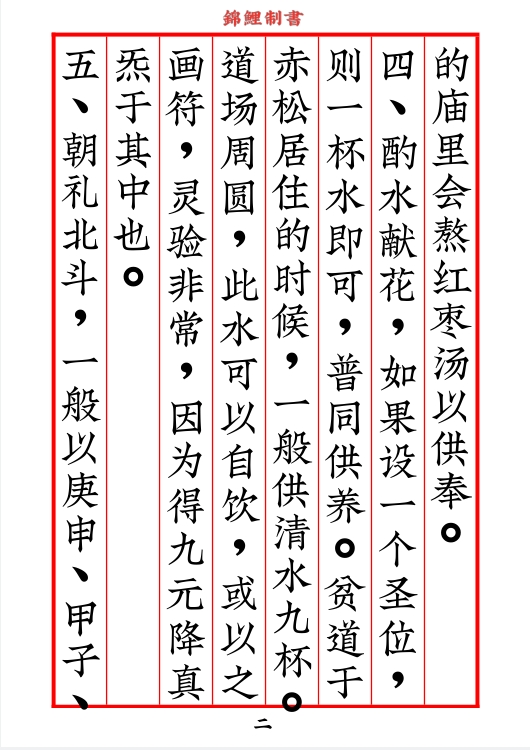 錦鯉制書
的庙里会熬红枣汤以供奉。
四、酌水献花，如果设一个圣位，
则一杯水即可，普同供养。贫道于
赤松居住的时候，一般供清水九杯。
道场周圆，此水可以自饮，或以之
画符，灵验非常，因为得九元降真
炁于其中也。
五、朝礼北斗，一般以庚申、甲子、
二